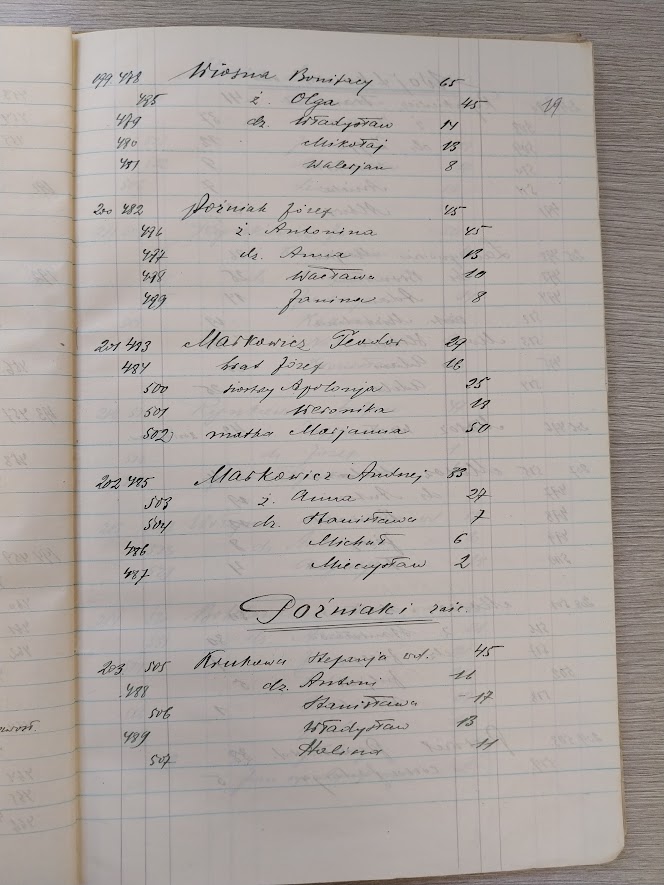 199 478 Wiosna Bonifacy 65
495 ż. Olga 45 19
479 dz. Władysław 14
480 Mikołaj 13
481 Walerjan 8
200 482 Poźniak Józef 45
496 ż. Antonina 45
497 dz. Anna 13
498 Wacława 10
499 Janina 8
201 483 Maśkowicz Teodor 27
484 brat Józef 16
500 siostry Apolonja 25
501 Weronika 18
502 matka Marjanna 50
202 485 Maśkowicz Andrzej 33
503 ż. Anna 27
504 dz. Stanisława 7
486 Michał 6
487 Mieczysław 2
Poźniaki zaśc.
203 505 Krukowa Stefanja wd. 45
488 dz. Antoni 16
506 Stanisława 17
489 Władysław 13
507 Halina 11